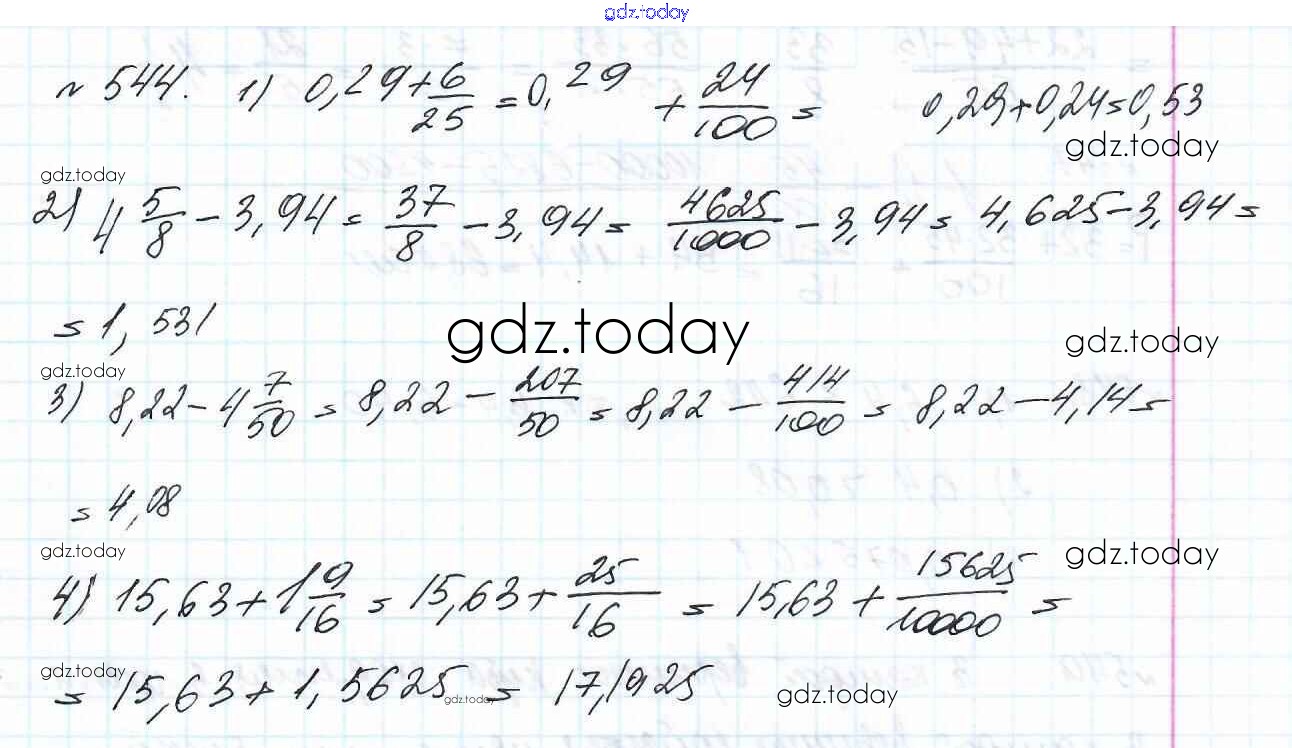 gdz.today
№ 544. 1) 0,29+6/25=0,29+24/100= 0,29+0,24=0,53
gdz.today
gdz.today
2) 4 5/8-3,94=37/8-3,94=4625/1000-3,94=4,625-3,94=
=1,531
gdz.today
gdz.today
gdz.today
3) 8,22-4 7/50=8,22-207/50=8,22-414/100=8,22-4,14=
=4,08
gdz.today
gdz.today
4) 15,63+1 9/16=15,63+25/16=15,63+15625/10000=
gdz.today
=15,63+1,5625=17,1925
gdz.today
gdz.today